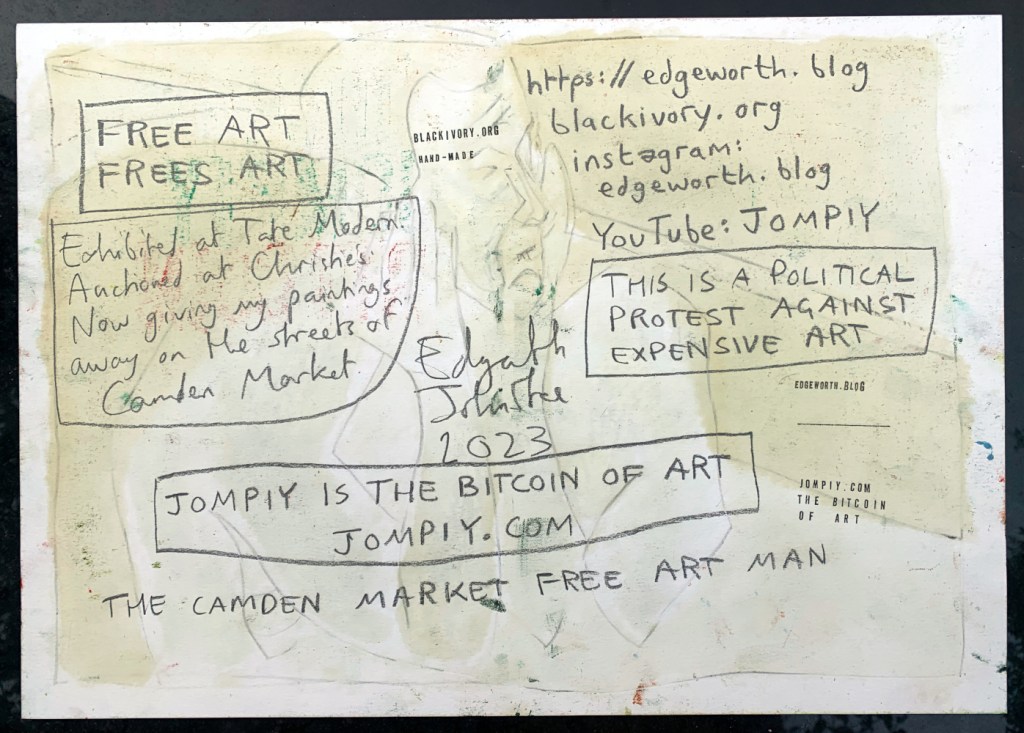 FREE ART
FREES ART
Exhibited at Tate Modern.
Auctioned at Christie's
Now giving my paintings
away on the streets of
Camden Market
BLACKIVORY.ORG
HAND-MADE
https://edgeworth.blog
blackivory.org
instagram:
edgeworth.blog
YouTube: JOMPIY
THIS IS A POLITICAL
PROTEST AGAINST
EXPENSIVE ART
EDGEWORTH.BLOG
Johnstone
2023
JOMPIY IS THE BITCOIN OF ART
JOMPIY.COM
JOMPIY.COM
THE BITCOIN
OF ART
THE CAMDEN MARKET FREE ART MAN